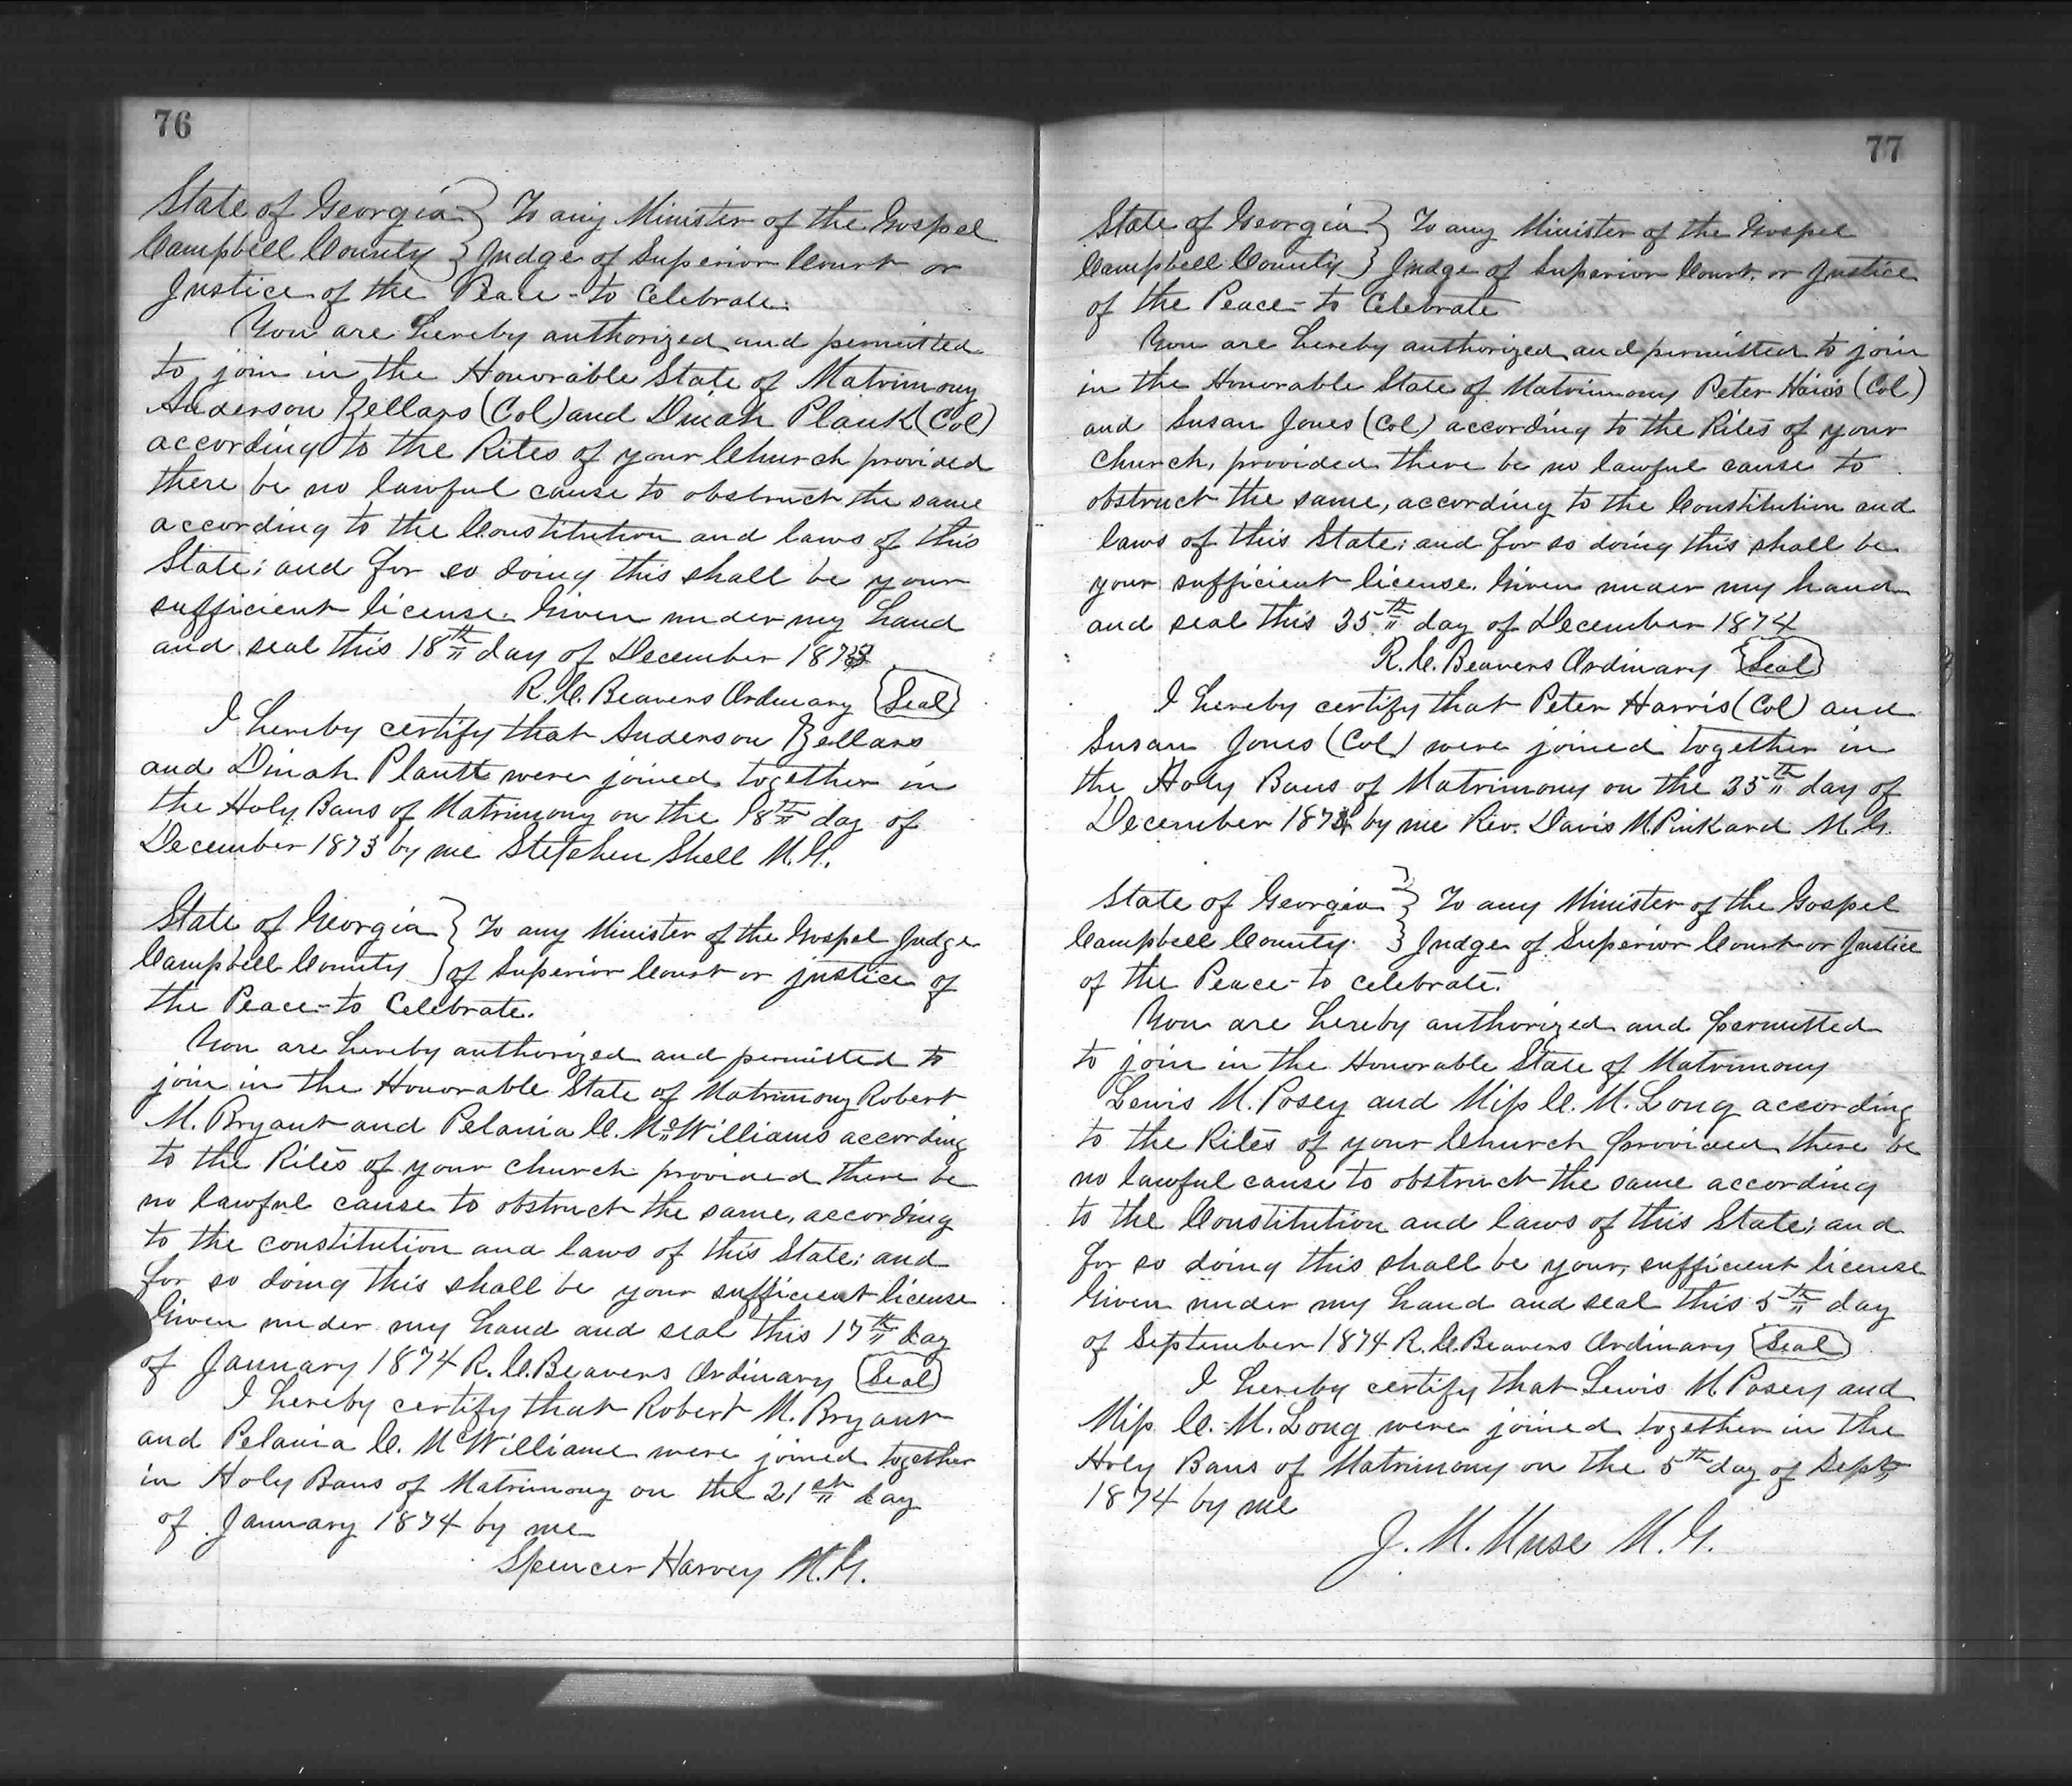 76
State of Georgia } To any Minister of the Gospel
Campbell County } Judge of Superior Court or
Justice of the Peace - to Celebrate.
You are hereby authorized and permitted
to join in the Honorable State of Matrimony
Anderson Zellars (Col) and Dinah Plank (Col)
according to the Rites of your Church provided
there be no lawful cause to obstruct the same
according to the Constitution and laws of this
State; and for so doing this shall be your
sufficient license. Given under my hand
and seal this 18th day of December 1873
R. C. Beavers Ordinary (Seal)
I hereby certify that Anderson Zellars
and Dinah Plantt were joined together in
the Holy Bans of Matrimony on the 18th day of
December 1873 by me Stephen Shell M.G.
State of Georgia } To any Minister of the Gospel Judge
Campbell County } of Superior Court or justice of
the Peace - to Celebrate.
You are hereby authorized and permitted to
join in the Honorable State of Matrimony Robert
M. Bryant and Pelania C. McWilliams according
to the Rites of your church provided there be
no lawful cause to obstruct the same, according
to the constitution and laws of this State; and
for so doing this shall be your sufficient license
Given under my hand and seal this 17th day
of January 1874 R. C. Beavers Ordinary (Seal)
I hereby certify that Robert M. Bryant
and Pelania C. McWilliams were joined together
in Holy Bans of Matrimony on the 21st day
of January 1874 by me
Spencer Harvey M.G.
77
State of Georgia } To any Minister of the Gospel
Campbell County } Judge of Superior Court, or Justice
of the Peace - to Celebrate
You are hereby authorized and permitted to join
in the Honorable State of Matrimony Peter Hariss (Col)
and Susan Jones (Col) according to the Rites of your
Church, provided there be no lawful cause to
obstruct the same, according to the Constitution and
laws of this State; and for so doing this shall be
your sufficient license. Given under my hand
and seal this 25th day of December 1874
R. C. Beavers Ordinary (Seal)
I hereby certify that Peter Harris (Col) and
Susan Jones (Col) were joined together in
the Holy Bans of Matrimony on the 25th day of
December 1874 by me Rev. Davis M Pinkard M.G.
State of Georgia } To any Minister of the Gospel
Campbell County } Judge of Superior Court or Justice
of the Peace - to celebrate.
You are hereby authorized and permitted
to join in the Honorable State of Matrimony
Lewis M. Posey and Miss C. M. Long according
to the Rites of your Church provided there be
no lawful cause to obstruct the same according
to the Constitution and laws of this State; and
for so doing this shall be your, sufficient license
Given under my hand and seal this 5th day
of September 1874 R. C. Beavers Ordinary (Seal)
I hereby certify that Lewis M Posey and
Miss C. M. Long were joined together in the
Holy Bans of Matrimony on the 5th day of Sept,
1874 by me
J. M. Muse M.G.